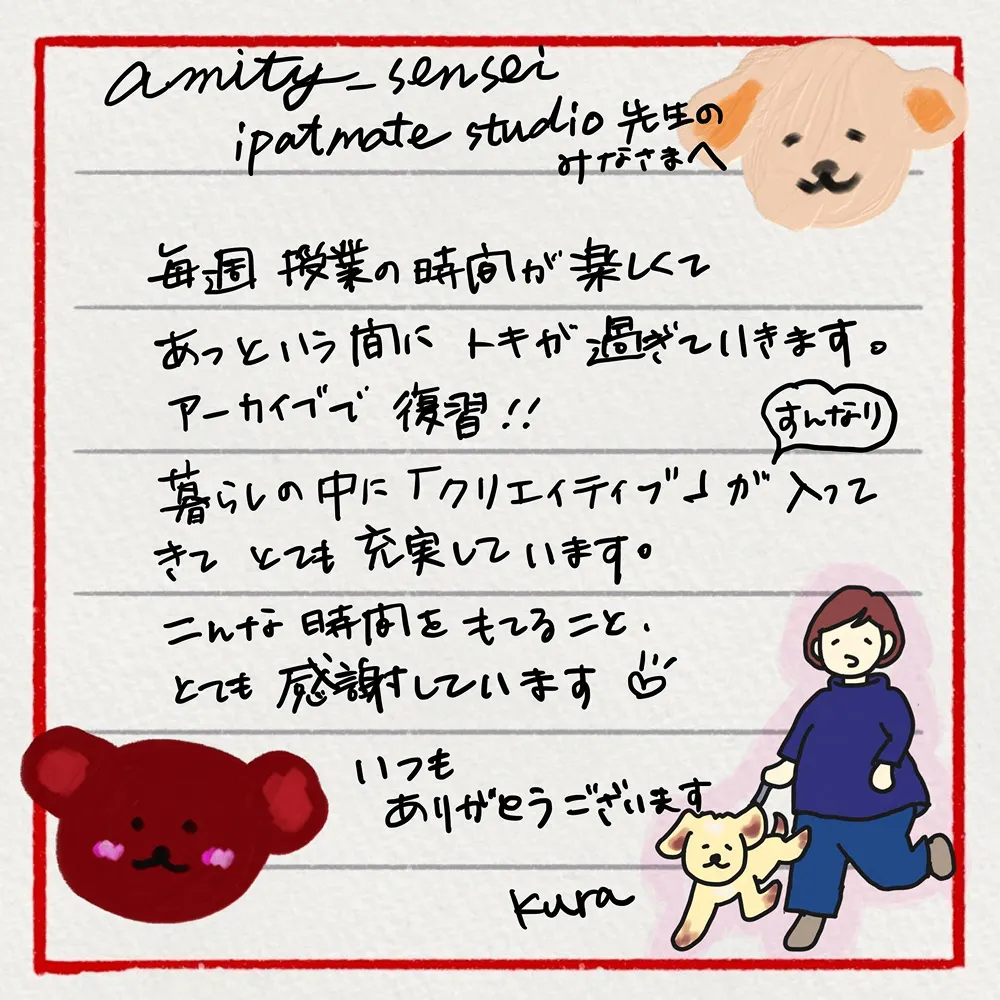 amity_sensei
ipatmate studio 先生の
みなさまへ
毎週 授業の時間が楽しくて
あっという間に トキが 過ぎていきます。
アーカイブで 復習!!
すんなり
暮らしの中に「クリエイティブ」が 入って
きて とても 充実しています。
こんな 時間を もてること、
とても 感謝しています
いつも
ありがとうございます
kura